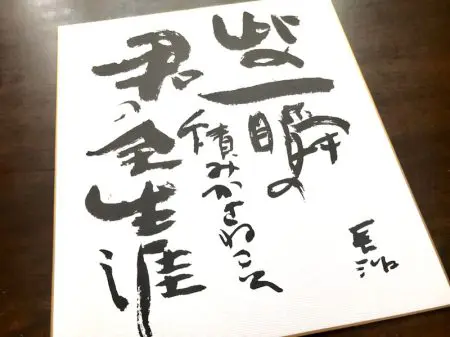 此の一瞬の
積みかさねこそ
君の全生涯